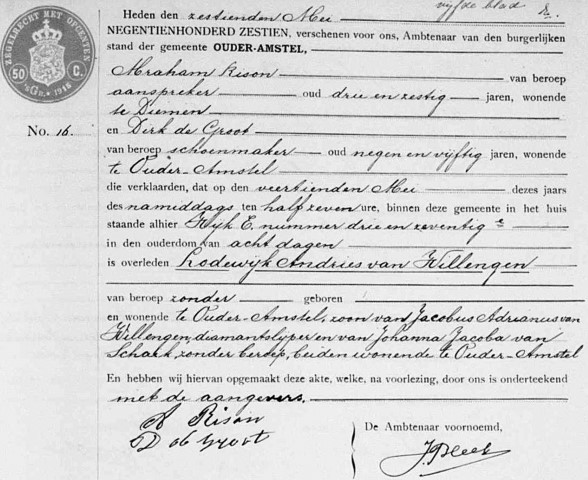 vijfde blad
ZEGELRECHT MET OPCENTEN
50 C.
'sGr. 1916
Heden den zestienden Mei
NEGENTIENHONDERD ZESTIEN, verschenen voor ons, Ambtenaar van den burgerlijken
stand der gemeente OUDER-AMSTEL,
Abraham Rison van beroep
aanspreker oud drie en zestig jaren, wonende
te Diemen
No. 16.
en Dirk de Groot
van beroep schoenmaker oud negen en vijftig jaren, wonende
te Ouder-Amstel
die verklaarden, dat op den veertienden Mei dezes jaars
des namiddags ten half zeven ure, binnen deze gemeente in het huis
staande alhier Wijk E. nummer drie en zeventig
in den ouderdom van acht dagen
is overleden Lodewijk Andries van Willengen
van beroep zonder geboren
en wonende te Ouder-Amstel, zoon van Jacobus Adrianus van
Willengen, diamantslijper en van Johanna Jacoba van
Schaik, zonder beroep, beiden wonende te Ouder-Amstel
En hebben wij hiervan opgemaakt deze akte, welke, na voorlezing, door ons is onderteekend
met de aangevers.
A Rison
D de Groot
De Ambtenaar voornoemd,